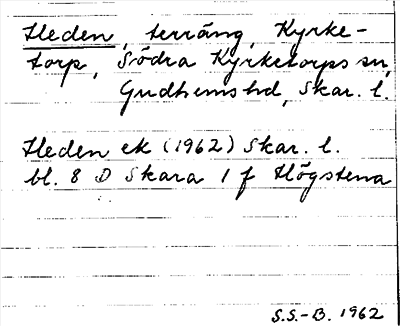 Heden, terräng, Kyrke-
torp, Södra Kyrketorps sn,
Gudhems hd, Skar. l.
Heden ek (1962) Skar. l.
bl. 8 D Skara 1 f Högstena
S.S.-B. 1962